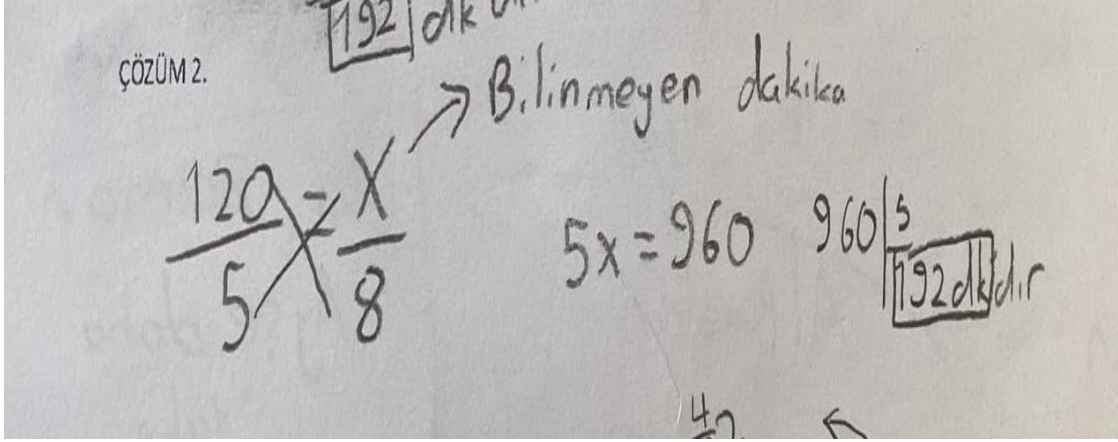 192 dk
ÇÖZÜM 2.
→ Bilinmeyen dakika
120/5 = X/8
5x = 960
960 | 5
192 dk dır
4